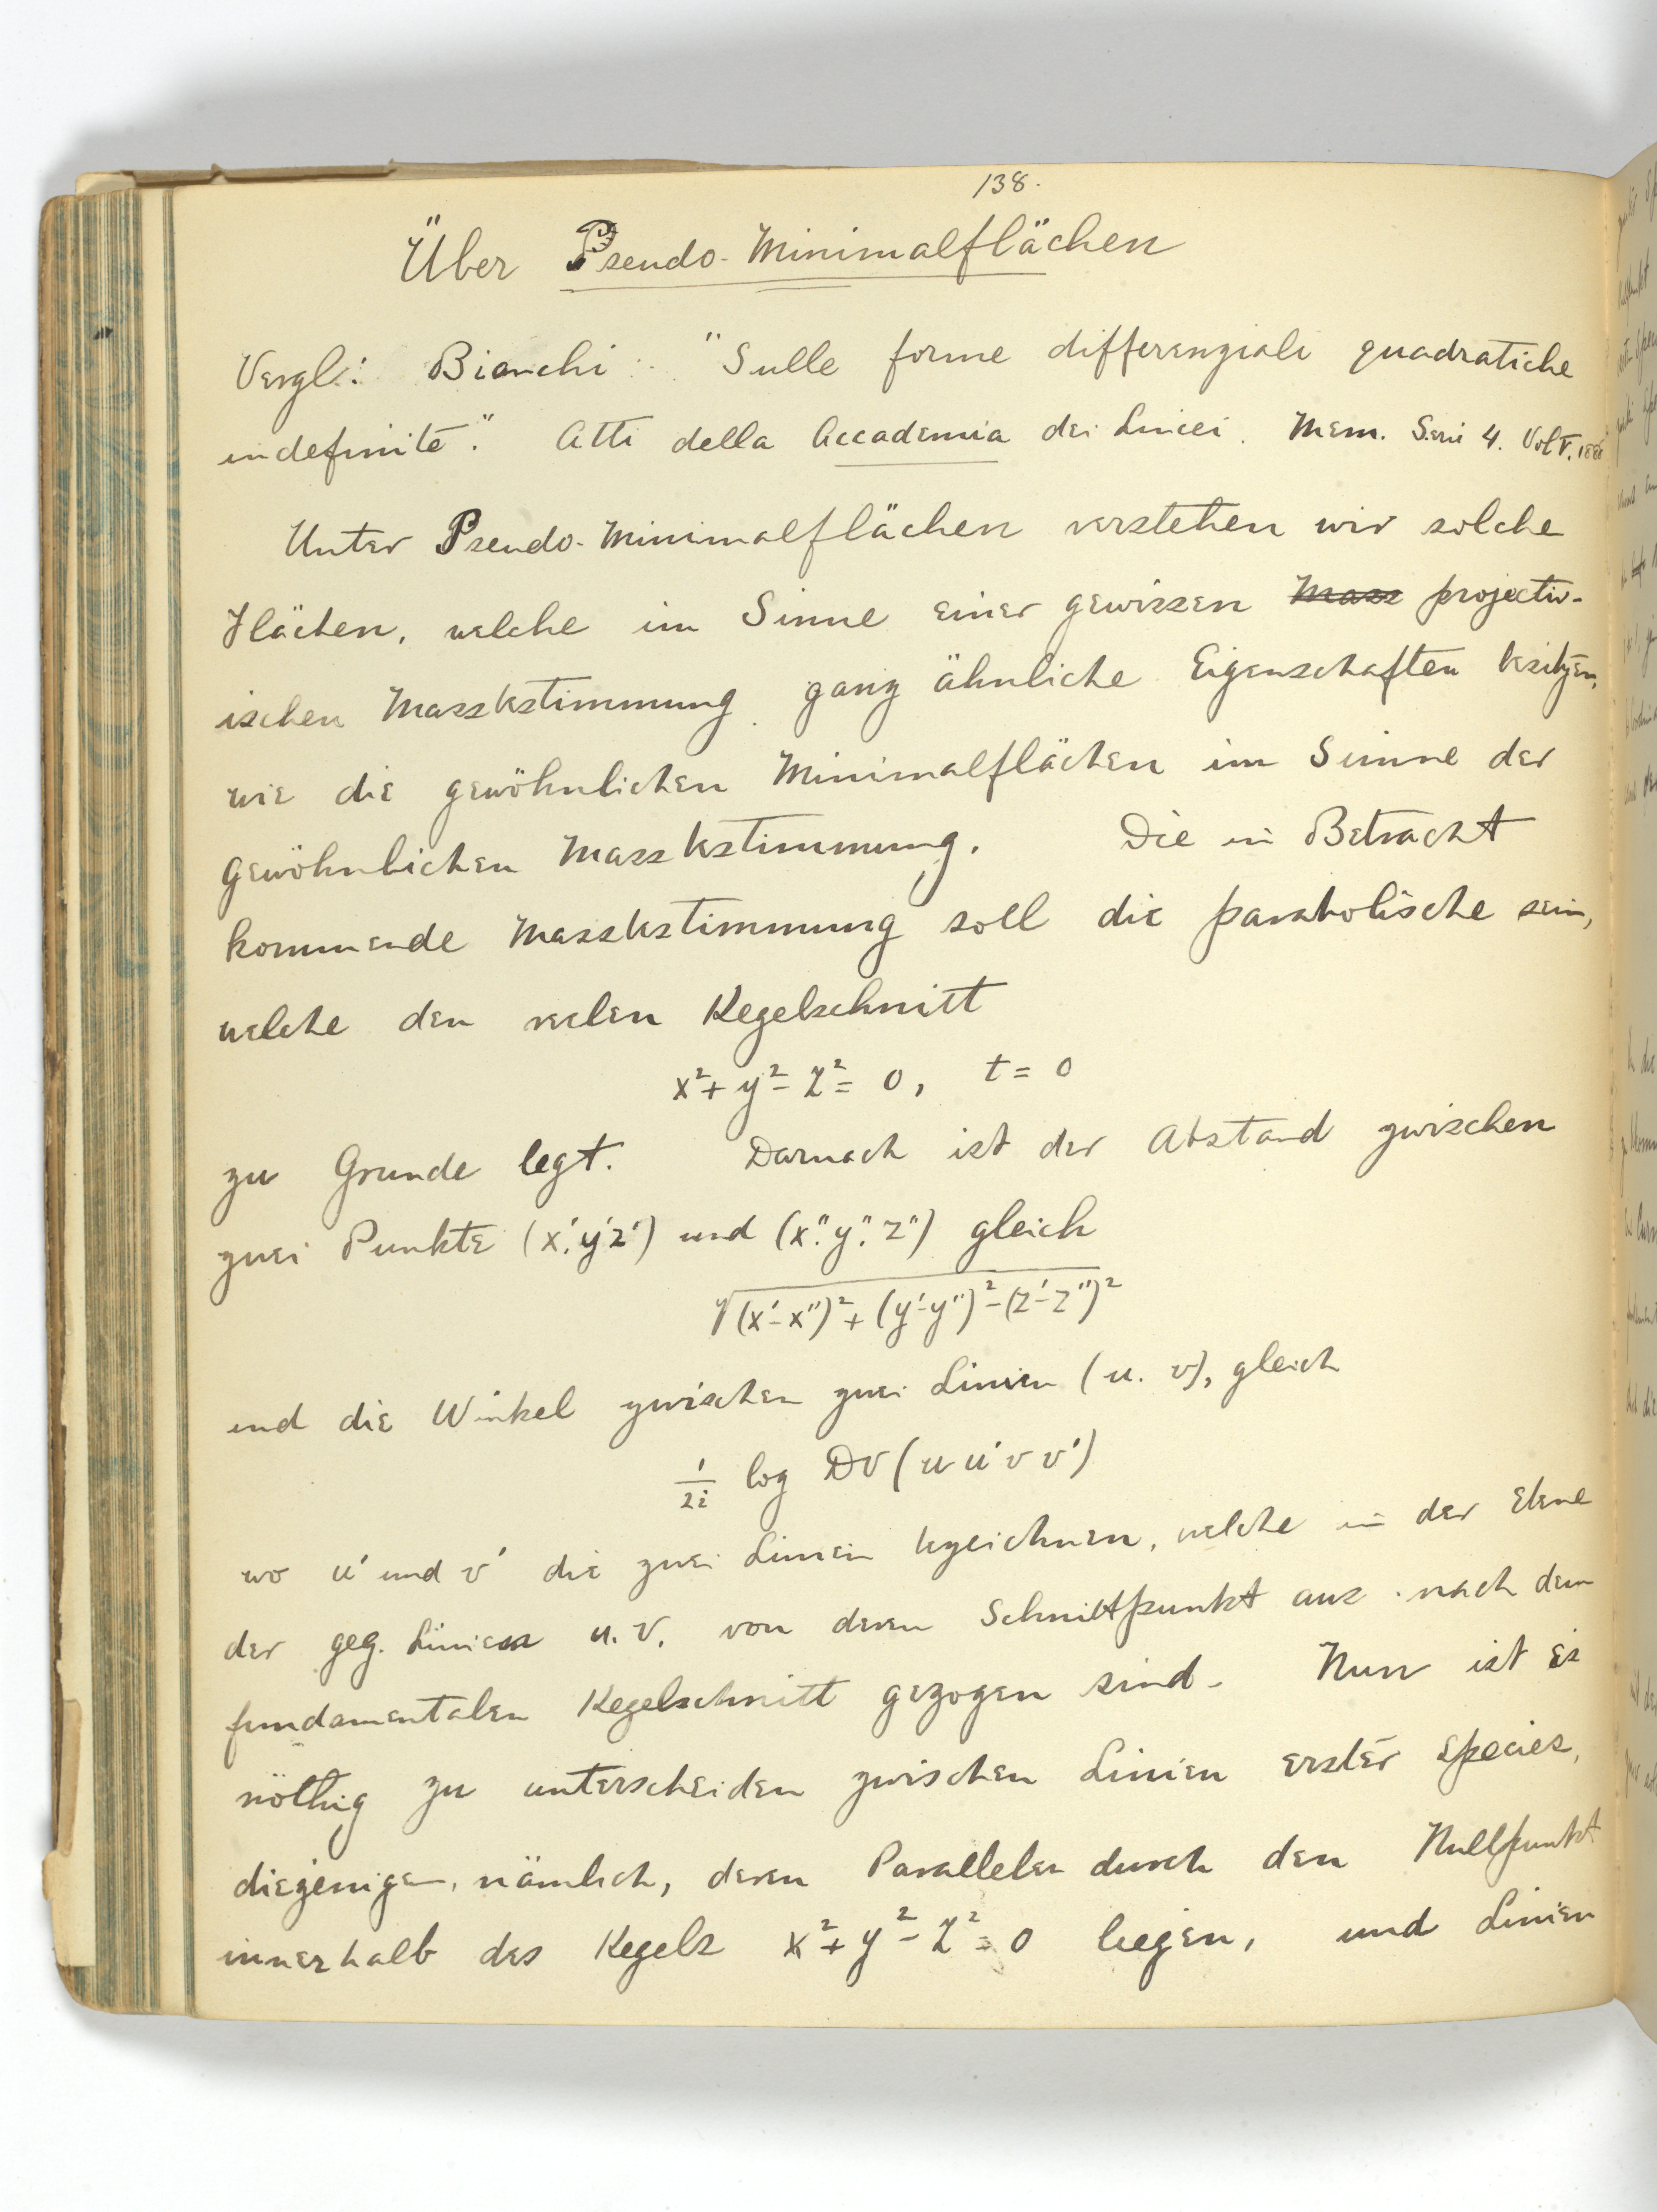 138.
Über Pseudo-Minimalflächen
Vergl.: Bianchi: "Sulle forme differenziali quadratiche
indefinite". Atti della Accademia dei Lincei. Mem. Seri 4. Vol V. 1888
Unter Pseudo-Minimalflächen verstehen wir solche
Flächen, welche im Sinne einer gewissen Mass projectiv-
ischen Massbestimmung ganz ähnliche Eigenschaften besitzen,
wie die gewöhnlichen Minimalflächen im Sinne der
gewöhnlichen Massbestimmung. Die in Betracht
kommende Massbestimmung soll die parabolische sein,
welche den reelen Kegelschnitt
x² + y² - z² = 0, t = 0
zu Grunde legt. Darnach ist der Abstand zwischen
zwei Punkte (x', y' z') und (x", y", z") gleich
√(x'-x")² + (y'-y")² - (z'-z")²
und die Winkel zwischen zwei Linien (u. v), gleich
1/2i log DV (u u' v v')
wo u' und v' die zwei Linien bezeichnen, welche in der Ebene
der geg. Linien u. v. von deren Schnittpunkt aus nach dem
fundamentalen Kegelschnitt gezogen sind. Nun ist es
nöthig zu unterscheiden zwischen Linien erster Species,
diejenigen, nämlich, deren Parallelen durch den Nullpunkt
innerhalb des Kegels x² + y² - z² = 0 liegen, und Linien